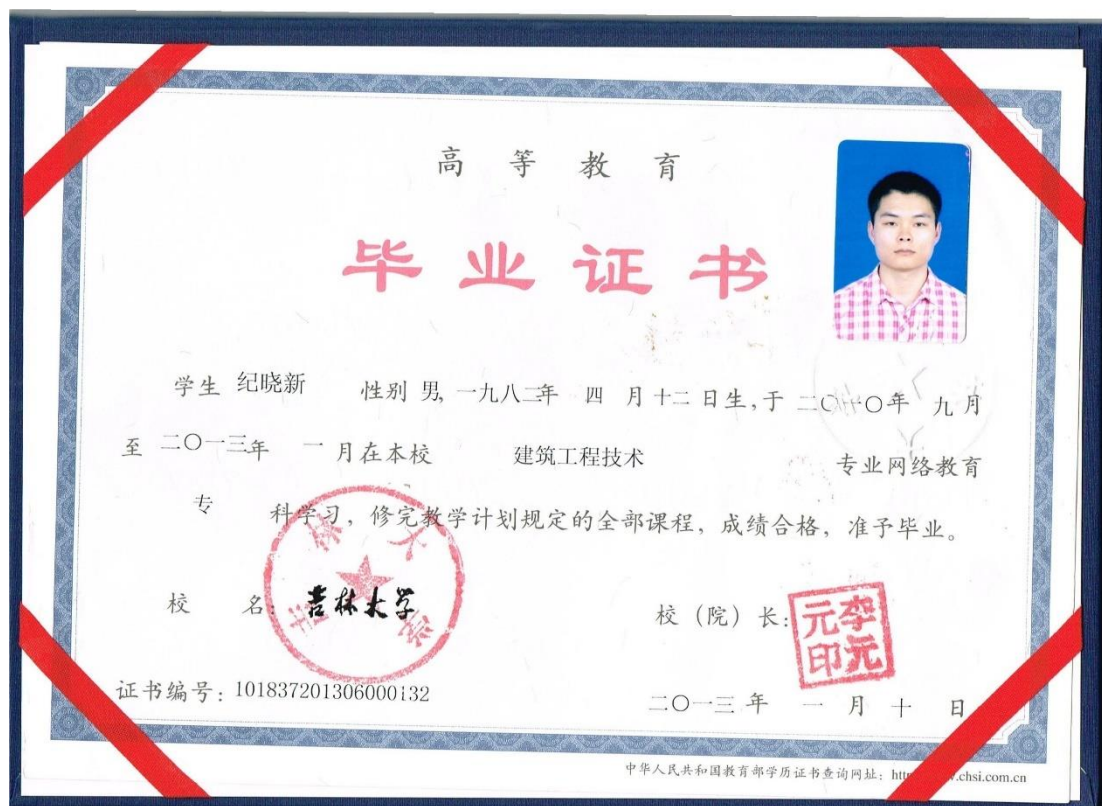 高等教育
毕业证书
学生 纪晓新 性别 男, 一九八二年 四 月 十二 日生,于 二〇一〇年 九月
至 二〇一三年 一 月在本校 建筑工程技术 专业网络教育
专 科学习,修完教学计划规定的全部课程,成绩合格,准予毕业。
校 名: 吉林大学
校(院)长: 李元元印
证书编号: 101837201306000132
二〇一三 年 一 月 十 日
中华人民共和国教育部学历证书查询网址: htt .chsi.com.cn